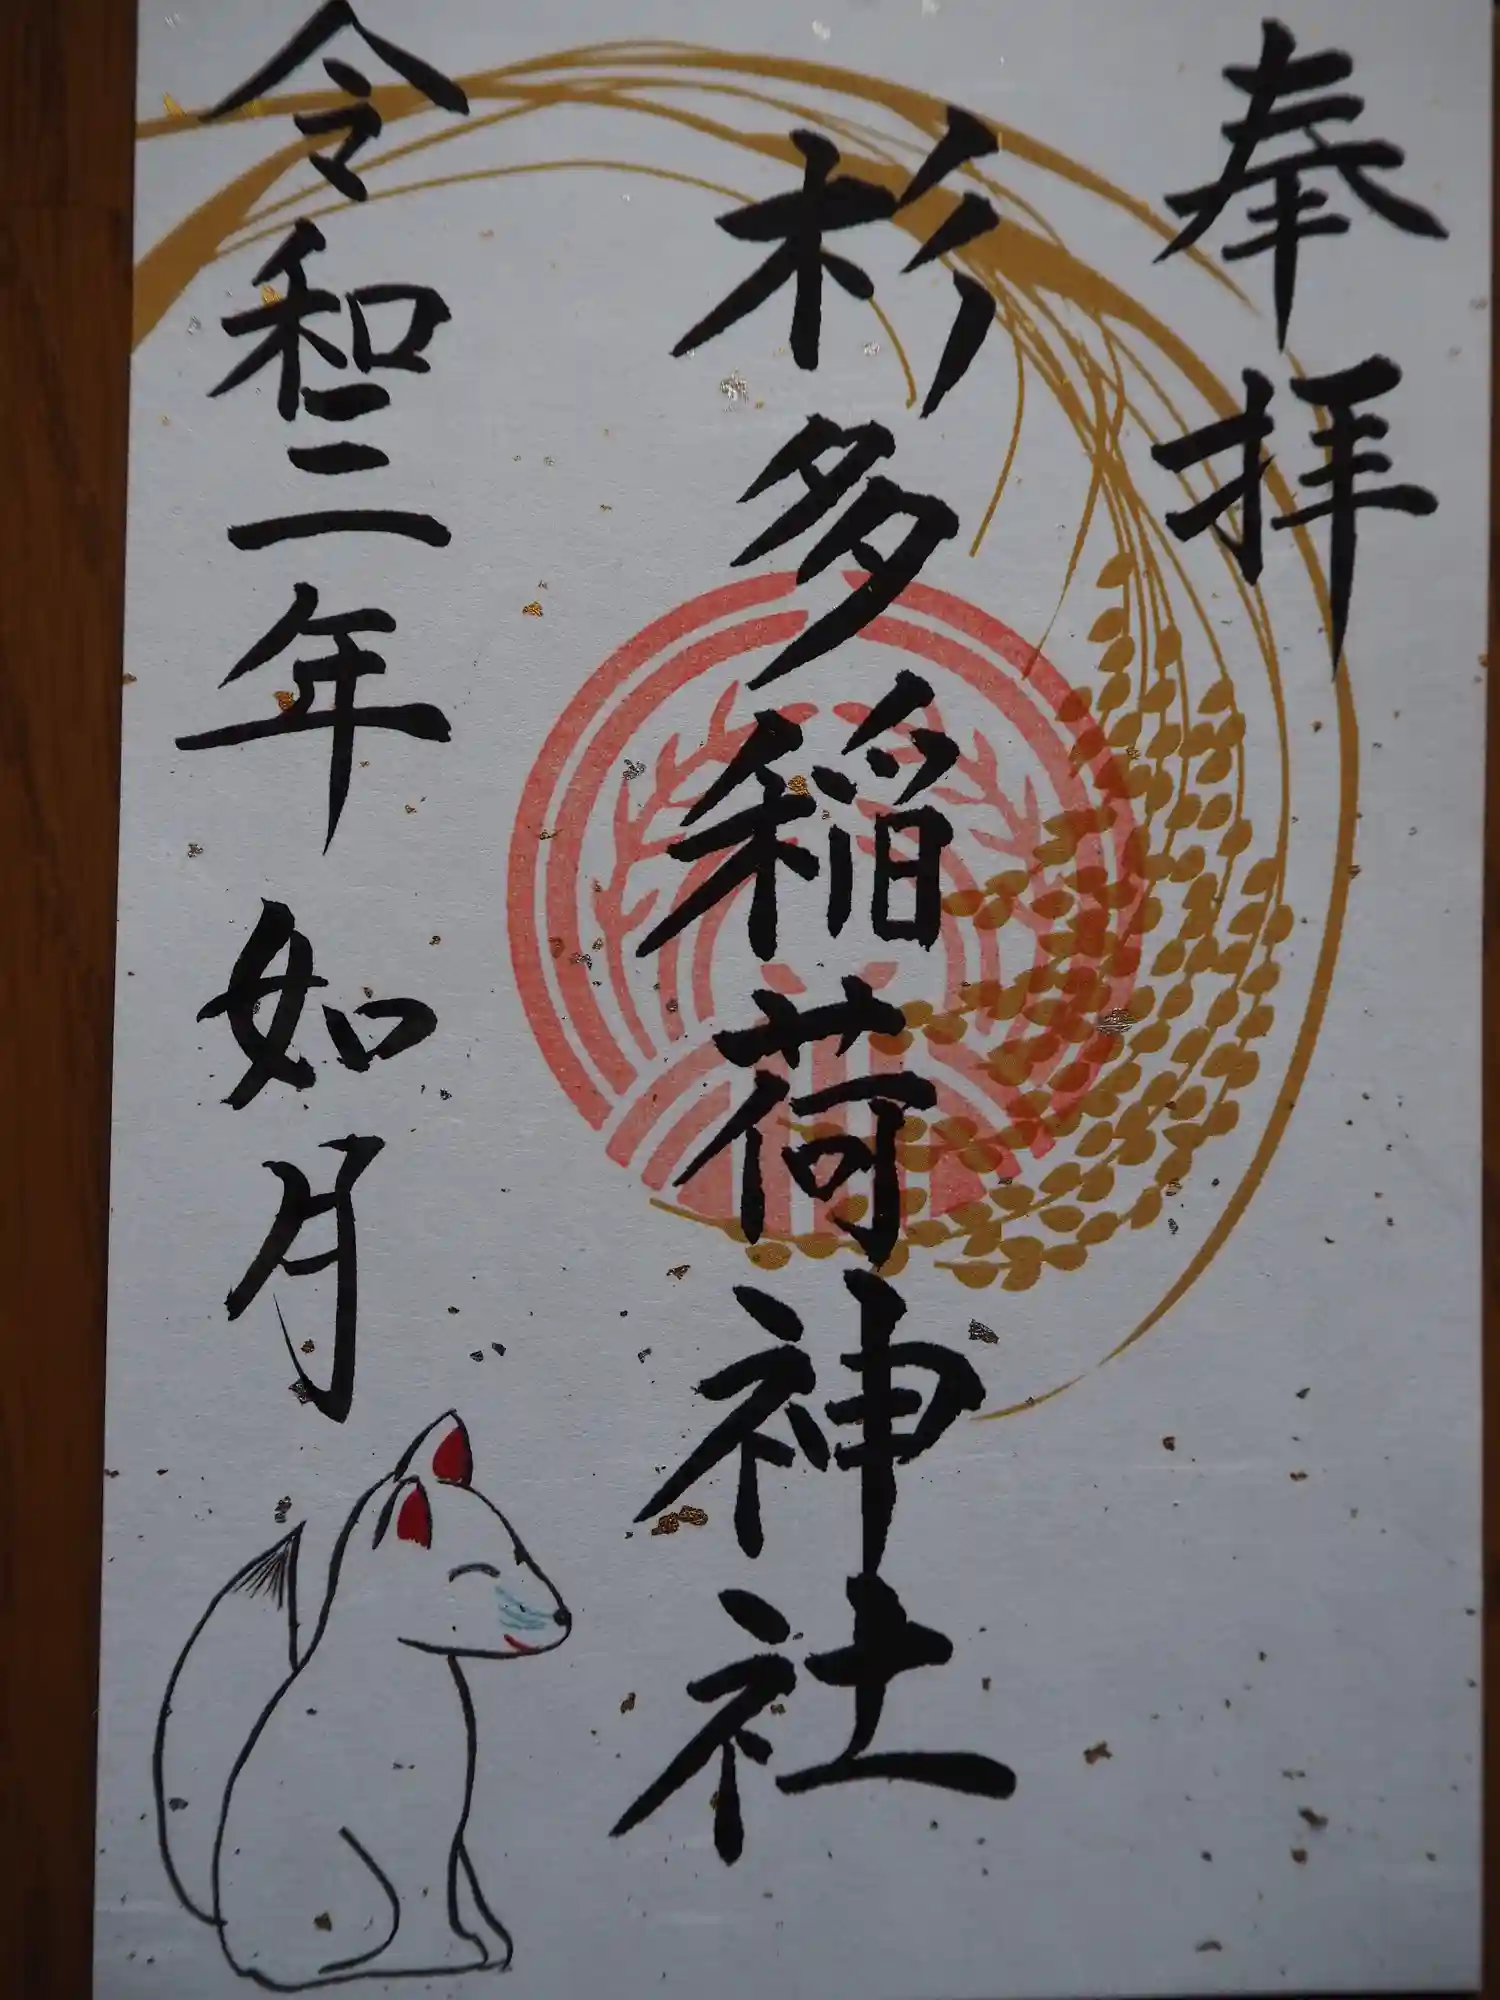 奉拝
杉多稲荷神社
令和三年 如月